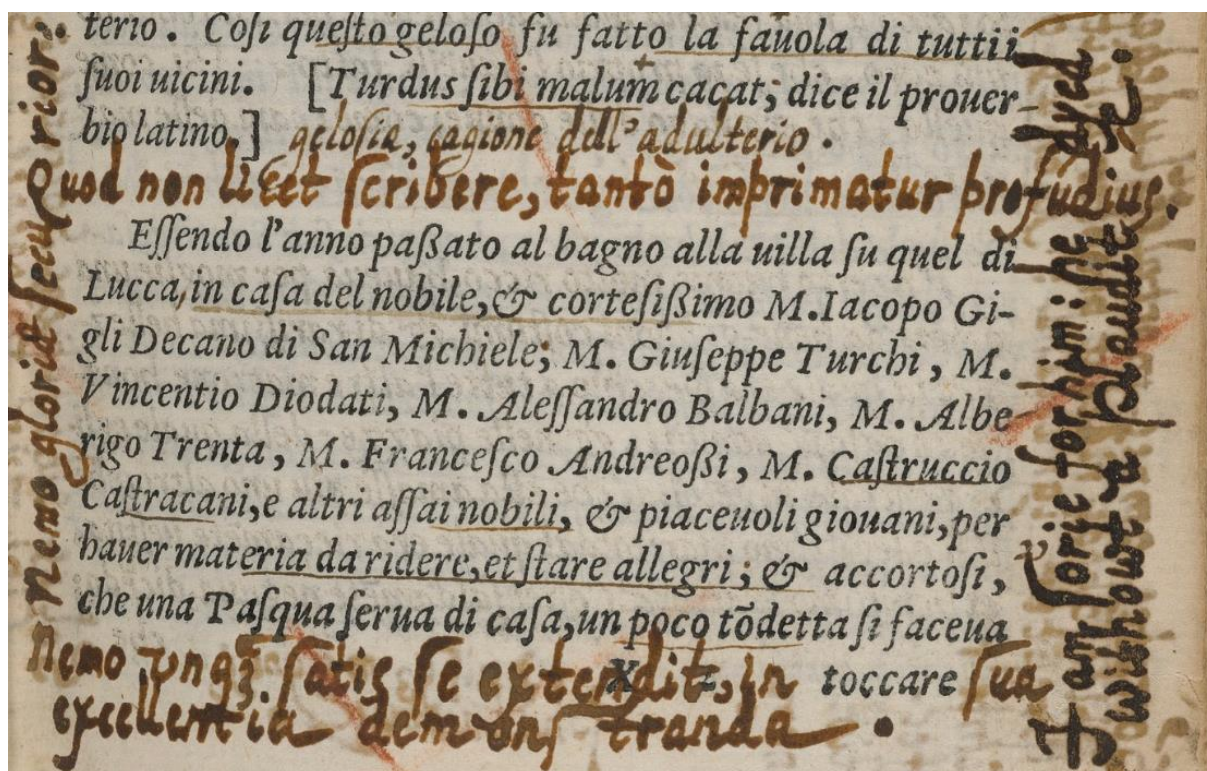 terio. Cosi questo geloso fu fatto la fauola di tutti i
suoi uicini. [Turdus sibi malum cacat; dice il prouer-
bio latino.] gelosia, cagione dell'adulterio.
Quod non licet scribere, tantò imprimatur profudius.
Essendo l'anno paßato al bagno alla uilla su quel di
Lucca, in casa del nobile, & cortesißimo M. Iacopo Gi-
gli Decano di San Michiele; M. Giuseppe Turchi, M.
Vincentio Diodati, M. Alessandro Balbani, M. Albe-
rigo Trenta, M. Francesco Andreoßi, M. Castruccio
Castracani, e altri assai nobili, & piaceuoli giouani, per
hauer materia da ridere, et stare allegri; & accortosi,
che una Pasqua serua di casa, un poco tõdetta si faceua
X 2 toccare
Nemo vnqȝ satis se extendit, in sua
excellentia demonstranda.
Nemo gloria secu prior.
I am sorie for him: he dyed
without a plaudite.